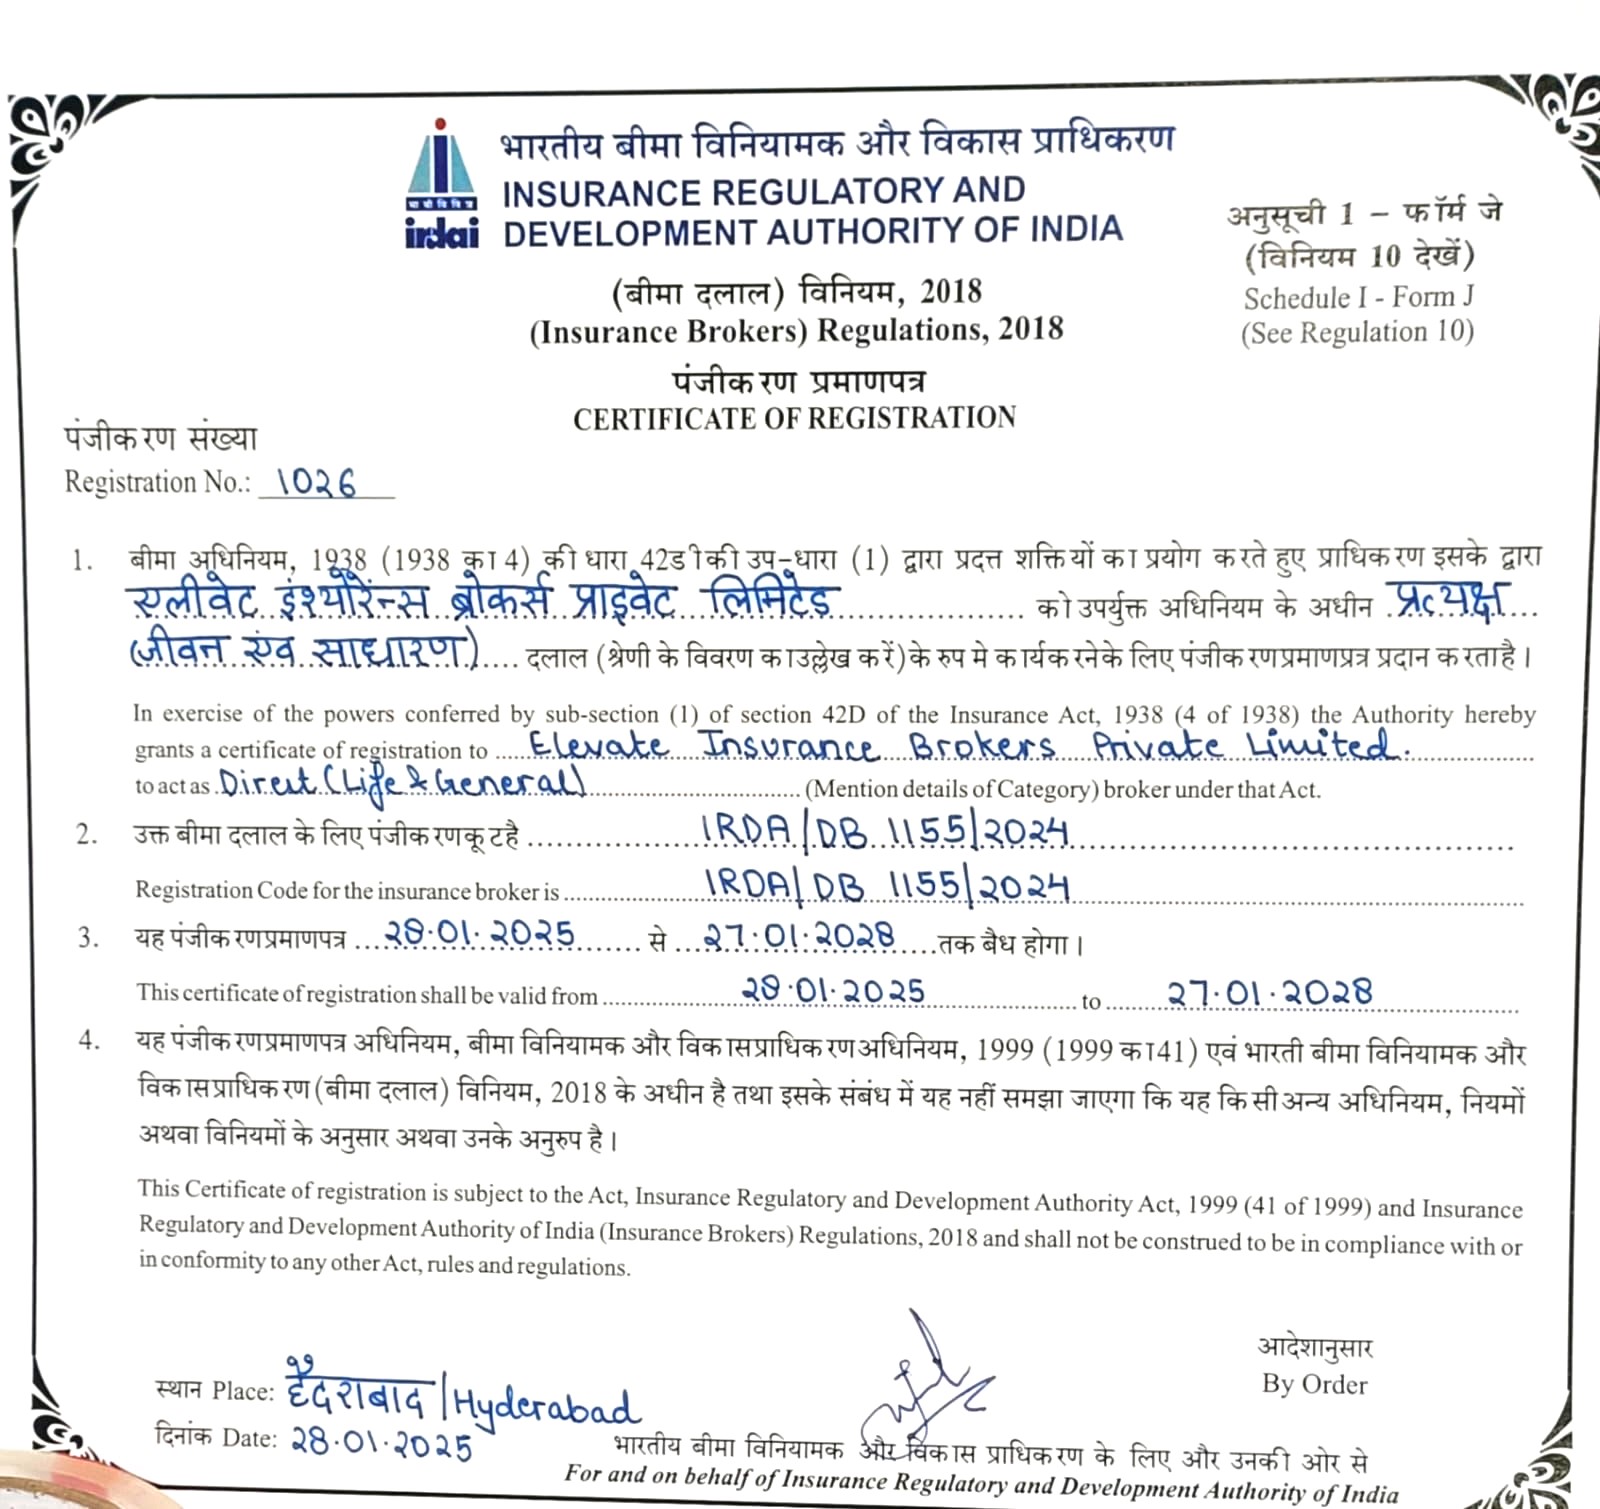 भारतीय बीमा विनियामक और विकास प्राधिकरण
INSURANCE REGULATORY AND
DEVELOPMENT AUTHORITY OF INDIA
भा बी वि वि प्रा
irdai
अनुसूची 1 - फॉर्म जे
(विनियम 10 देखें)
Schedule I - Form J
(See Regulation 10)
(बीमा दलाल) विनियम, 2018
(Insurance Brokers) Regulations, 2018
पंजीकरण प्रमाणपत्र
CERTIFICATE OF REGISTRATION
पंजीकरण संख्या
Registration No.: 1026
1. बीमा अधिनियम, 1938 (1938 का 4) की धारा 42डी की उप-धारा (1) द्वारा प्रदत्त शक्तियों का प्रयोग करते हुए प्राधिकरण इसके द्वारा
एलीवेट इंश्योरेंन्स ब्रोकर्स प्राइवेट लिमिटेड को उपर्युक्त अधिनियम के अधीन प्रत्यक्ष
(जीवन एंव साधारण) दलाल (श्रेणी के विवरण का उल्लेख करें) के रुप मे कार्य करने के लिए पंजीकरण प्रमाणप्रत्र प्रदान करता है।
In exercise of the powers conferred by sub-section (1) of section 42D of the Insurance Act, 1938 (4 of 1938) the Authority hereby
grants a certificate of registration to Elevate Insurance Brokers Private Limited.
to act as Direct (Life & General) (Mention details of Category) broker under that Act.
2. उक्त बीमा दलाल के लिए पंजीकरण कूट है IRDA/DB 1155/2024
Registration Code for the insurance broker is IRDA/DB 1155/2024
3. यह पंजीकरण प्रमाणपत्र 28.01.2025 से 27.01.2028 तक बैध होगा।
This certificate of registration shall be valid from 28.01.2025 to 27.01.2028
4. यह पंजीकरण प्रमाणपत्र अधिनियम, बीमा विनियामक और विकास प्राधिकरण अधिनियम, 1999 (1999 का 41) एवं भारती बीमा विनियामक और
विकास प्राधिकरण (बीमा दलाल) विनियम, 2018 के अधीन है तथा इसके संबंध में यह नहीं समझा जाएगा कि यह किसी अन्य अधिनियम, नियमों
अथवा विनियमों के अनुसार अथवा उनके अनुरुप है।
This Certificate of registration is subject to the Act, Insurance Regulatory and Development Authority Act, 1999 (41 of 1999) and Insurance
Regulatory and Development Authority of India (Insurance Brokers) Regulations, 2018 and shall not be construed to be in compliance with or
in conformity to any other Act, rules and regulations.
आदेशानुसार
By Order
स्थान Place: हैदराबाद/Hyderabad
दिनांक Date: 28.01.2025
भारतीय बीमा विनियामक और विकास प्राधिकरण के लिए और उनकी ओर से
For and on behalf of Insurance Regulatory and Development Authority of India